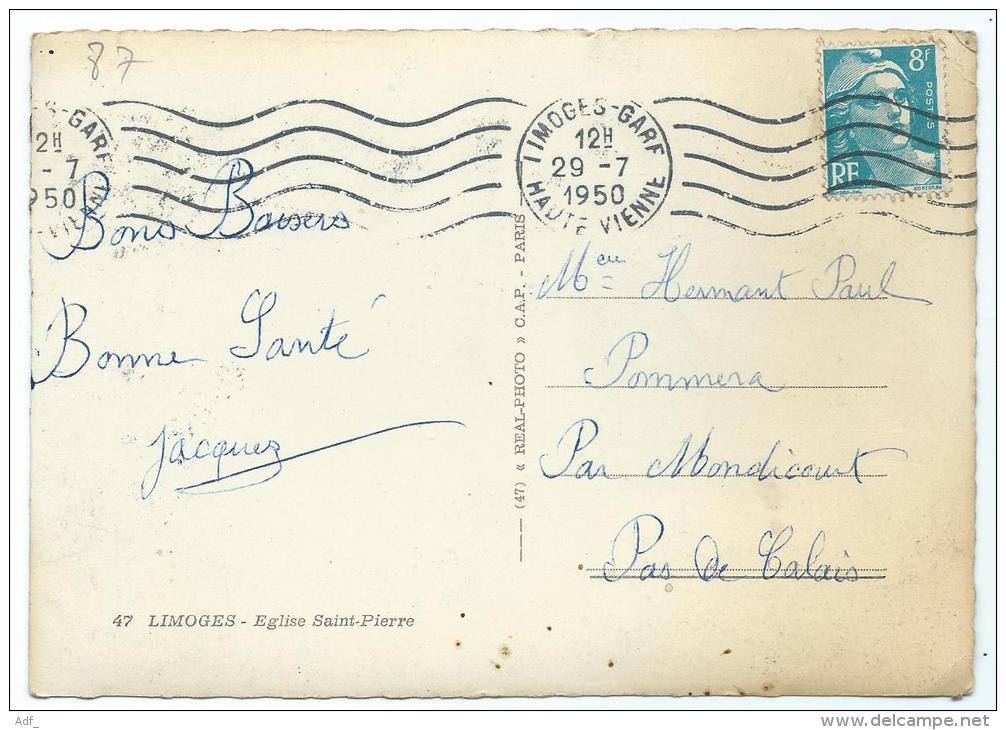 87
S-GARE
2H
- 7
1950
-VIENN
LIMOGES-GARE
12H
29 -7
1950
HAUTE VIENNE
8f
POSTES
RF
Bons Baisers
Bonne Santé
Jacques
(47) « REAL-PHOTO » C.A.P. - PARIS
Hermant Paul
Pommera
Par Mondicourt
Pas de Calais
47 LIMOGES - Eglise Saint-Pierre
Adf_
www.delcampe.net